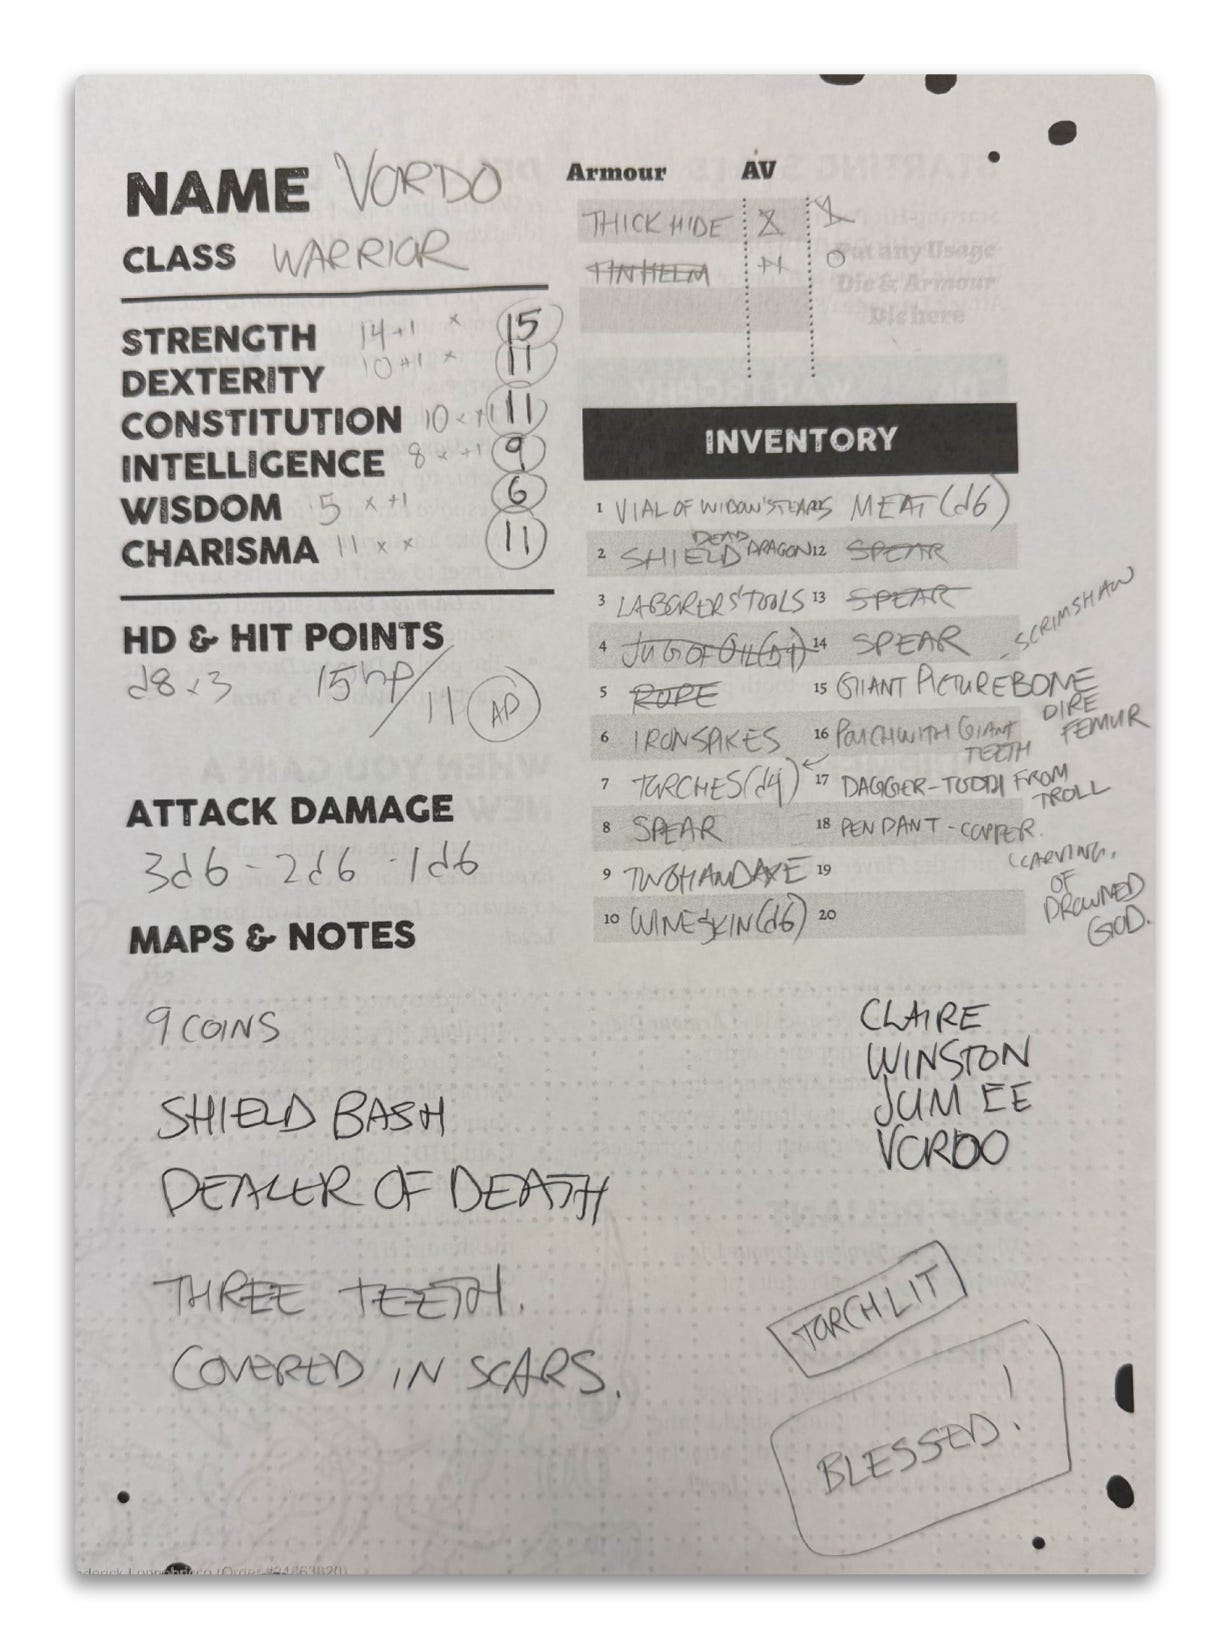 NAME VORDO
CLASS WARRIOR
STRENGTH 14+1 x 15
DEXTERITY 10+1 x 11
CONSTITUTION 10 x +1 11
INTELLIGENCE 8 x +1 9
WISDOM 5 x +1 6
CHARISMA 11 x x 11
HD & HIT POINTS
d8 x3 15hp/11 AD
ATTACK DAMAGE
3d6 - 2d6 - 1d6
MAPS & NOTES
Armour AV
THICK HIDE 1
TIN HELM 0
INVENTORY
1 VIAL OF WIDOW'S TEARS MEAT (d6)
2 SHIELD DEAD DRAGON 12 SPEAR
3 LABORERS' TOOLS 13 SPEAR
4 JUG OF OIL 14 SPEAR
SCRIMSHAW
5 ROPE 15 GIANT PICTURE BONE
DIRE
FEMUR
6 IRON SPIKES 16 POUCH WITH GIANT
TEETH
7 TORCHES (d4) 17 DAGGER - TOOTH FROM
TROLL
8 SPEAR 18 PENDANT - COPPER.
CARVING.
OF
DROWNED
GOD.
9 TWO HAND AXE 19
10 WINESKIN (d6) 20
9 COINS
SHIELD BASH
DEALER OF DEATH
THREE TEETH.
COVERED IN SCARS.
CLAIRE
WINSTON
JUM EE
VORDO
TORCH LIT
BLESSED!